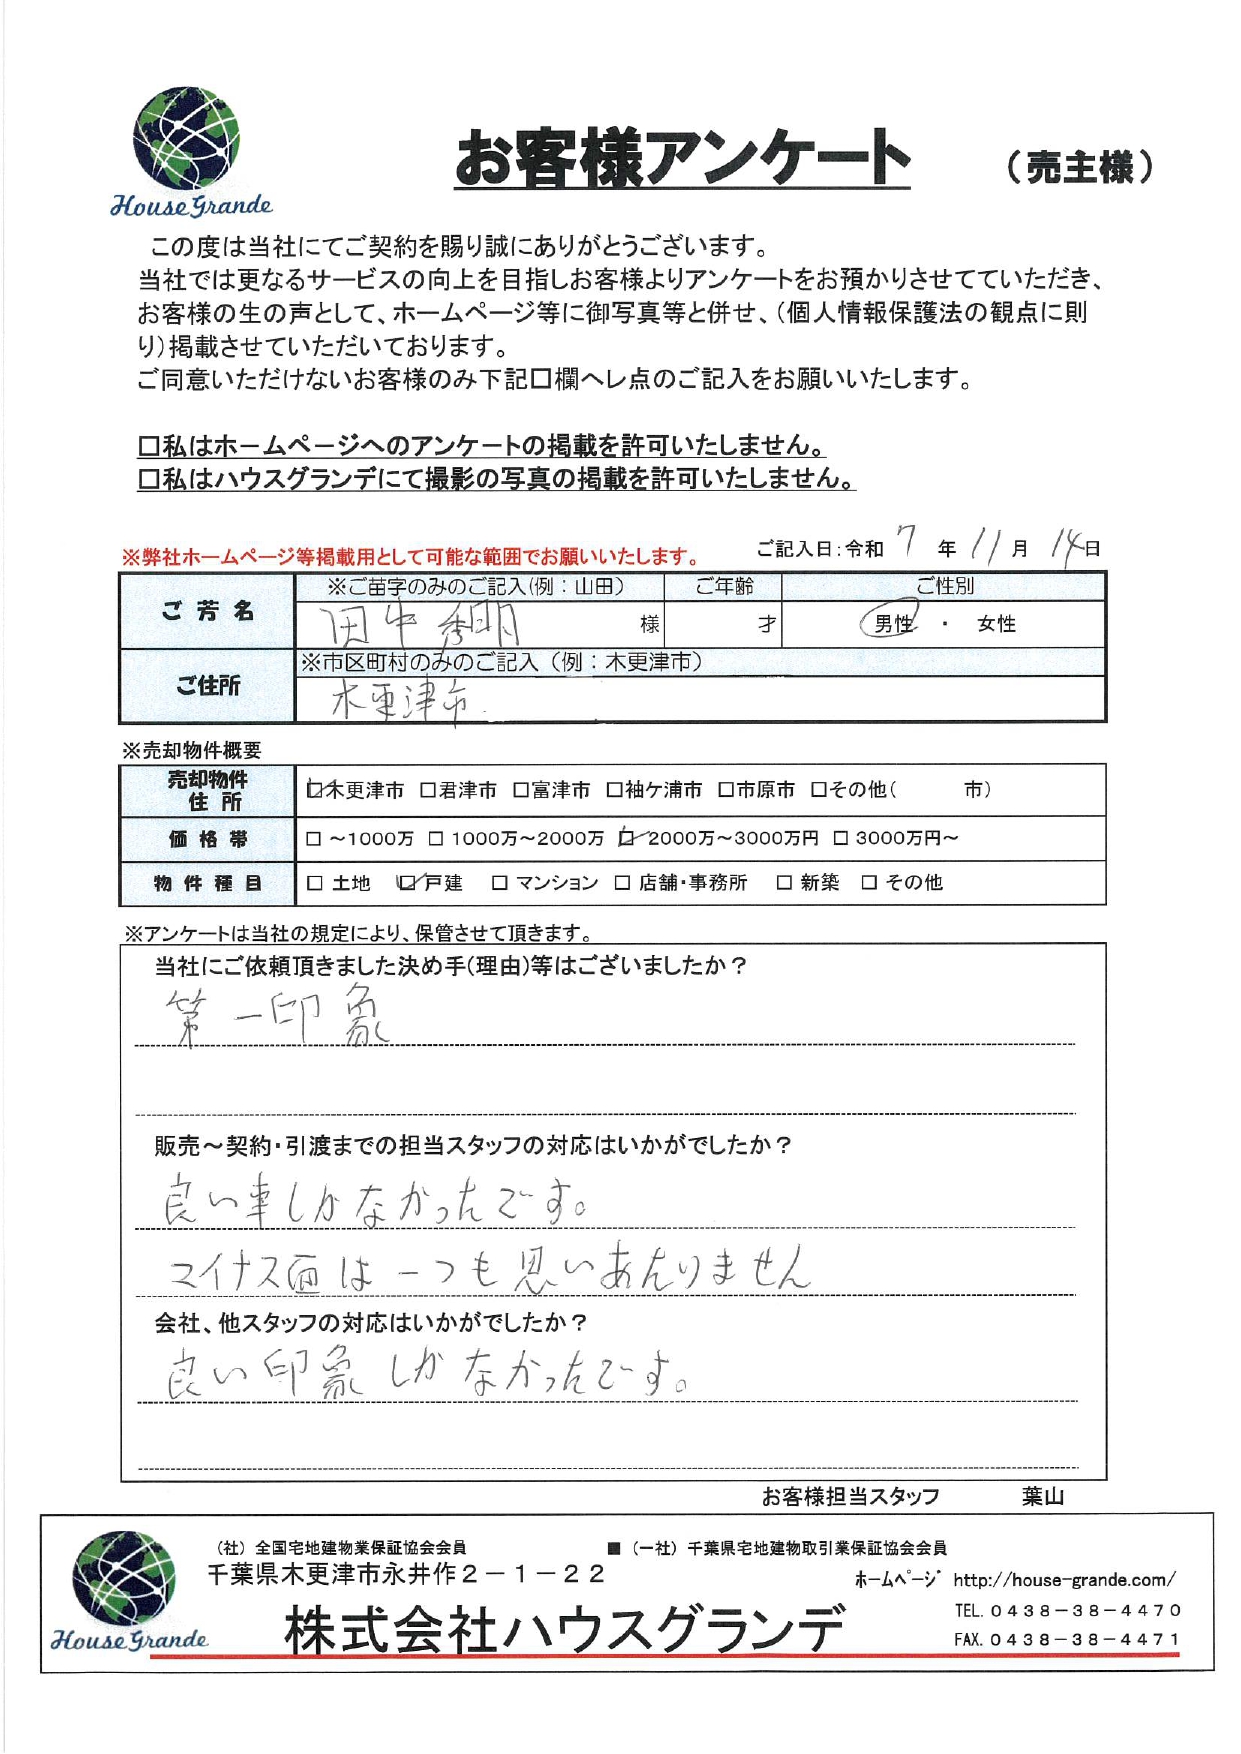 House Grande
お客様アンケート （売主様）
この度は当社にてご契約を賜り誠にありがとうございます。
当社では更なるサービスの向上を目指しお客様よりアンケートをお預かりさせてていただき、
お客様の生の声として、ホームページ等に御写真等と併せ、（個人情報保護法の観点に則
り）掲載させていただいております。
ご同意いただけないお客様のみ下記口欄へレ点のご記入をお願いいたします。
□私はホームページへのアンケートの掲載を許可いたしません。
□私はハウスグランデにて撮影の写真の掲載を許可いたしません。
※弊社ホームページ等掲載用として可能な範囲でお願いいたします。 ご記入日:令和 7 年 11 月 14 日
ご芳名 ※ご苗字のみのご記入(例：山田） ご年齢 ご性別
田中 秀明 様 才 男性 ・ 女性
ご住所 ※市区町村のみのご記入（例：木更津市）
木更津市
※売却物件概要
売却物件住所 ☑木更津市 □君津市 □富津市 □袖ケ浦市 □市原市 □その他( 市)
価格帯 □ ～1000万 □ 1000万～2000万 ☑ 2000万～3000万円 □ 3000万円～
物件種目 □ 土地 ☑戸建 □ マンション □ 店舗・事務所 □ 新築 □ その他
※アンケートは当社の規定により、保管させて頂きます。
当社にご依頼頂きました決め手(理由)等はございましたか？
第一印象
販売～契約・引渡までの担当スタッフの対応はいかがでしたか？
良い事しかなかったです。
マイナス面は一つも思いあたりません
会社、他スタッフの対応はいかがでしたか？
良い印象しかなかったです。
お客様担当スタッフ 葉山
（社）全国宅地建物業保証協会会員 ■（一社）千葉県宅地建物取引業保証協会会員
千葉県木更津市永井作２－１－２２ ホームページ http://house-grande.com/
House Grande 株式会社ハウスグランデ
TEL. ０４３８－３８－４４７０
FAX. ０４３８－３８－４４７１